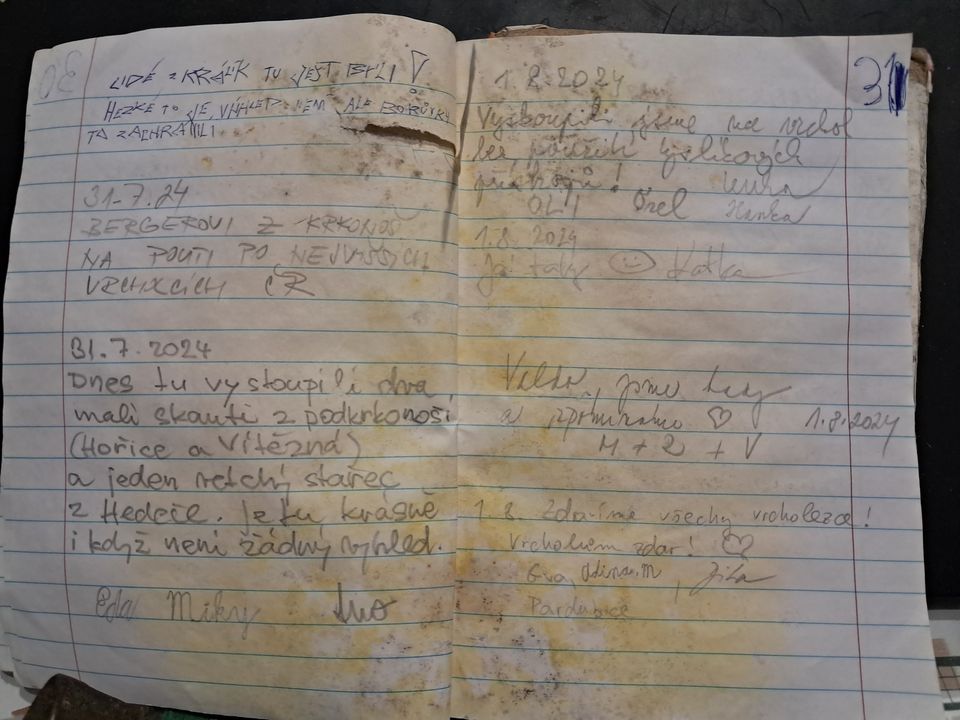 30
LIDÉ Z KRÁLÍK TU JEŠT BYLI
HEZKÉ TO JE, VÝHLED NENÍ, ALE BORŮVKY
TA ZACHRÁNILI
31.7.24
BERGEROVI Z KRKONOŠ
NA POUTI PO NEJVYŠŠÍCH
VRCHOLCÍCH ČR
31.7.2024
Dnes tu vystoupili dva
malí skauti z podkrkonoší
(Hořice a Vítězná)
a jeden vetchý stařec
z Hedeče. Je tu krásně
i když není žádný výhled.
Eda Miky Ivo
31
1.8.2024
Vystoupili jsme na vrchol
bez použití kyslíkových
přístrojů!
OLY Orel Hanka
1.8.2024
Já taky Katka
jsme tady
a 1.8.2024
M + R + V
1.8. Zdravíme všechy vrcholezce!
Vrcholům zdar!
Eva, Jitka
Pardubice